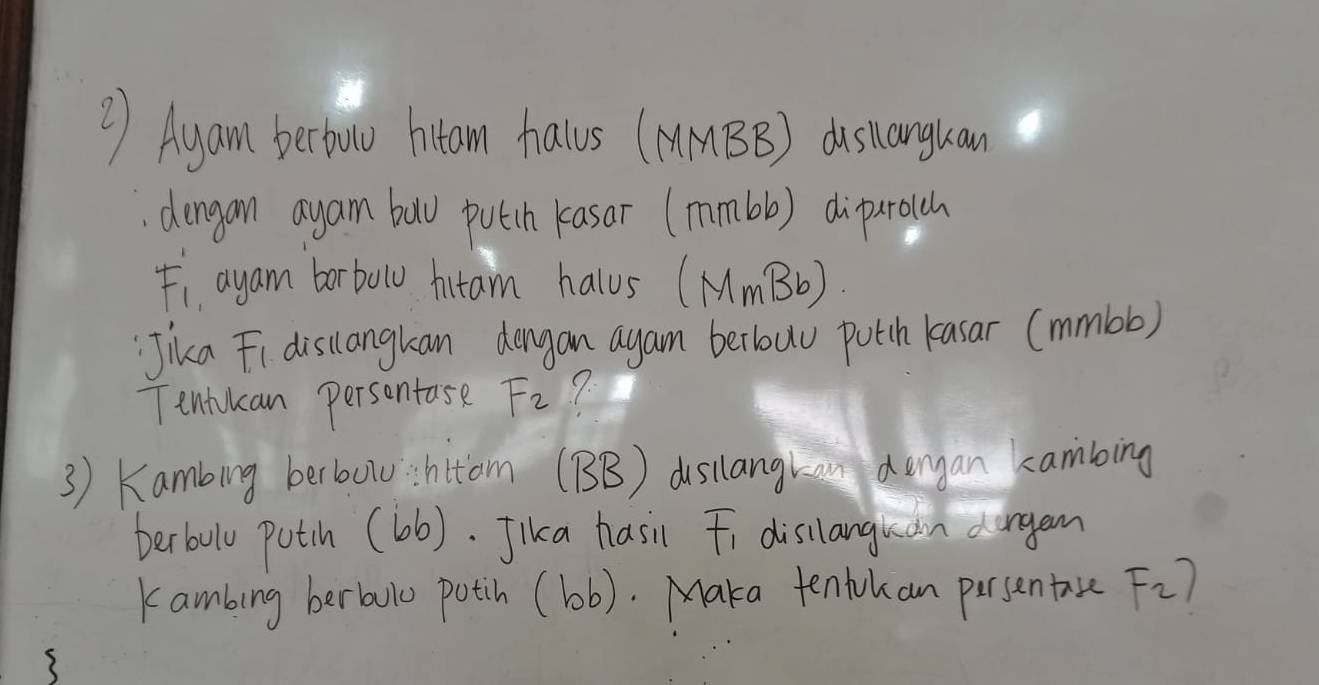 2) Ayam berbulu hitam halus (MMBB) disilangkan
dengan ayam bulu putih kasar (mmbb) diperoleh
F1, ayam berbulu hitam halus (MmBb).
Jika F1 disilangkan dengan ayam berbulu putih kasar (mmbb)
Tentukan persentase F2?
3) Kambing berbulu hitam (BB) disilangkan dengan kambing
berbulu putih (bb). Jika hasil F1 disilangkan dengan
Kambing berbulu putih (bb). Maka tentukan persentase F2?